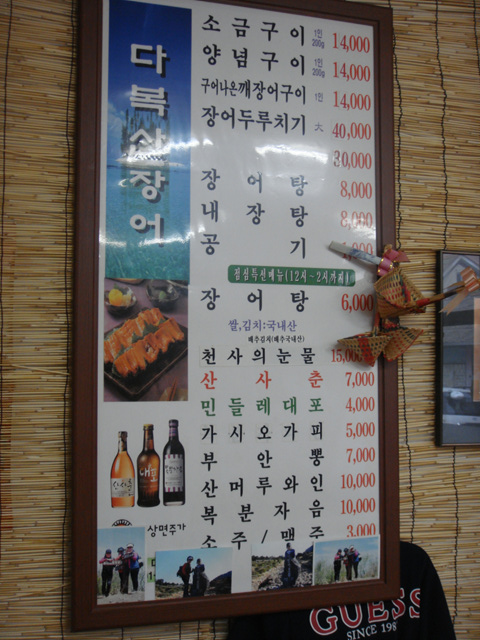 다복산장어
소금구이 1인 200g 14,000
양념구이 1인 200g 14,000
구어나온깨장어구이 1인 14,000
장어두루치기 大 40,000
30,000
장어탕 8,000
내장탕 8,000
공기
점심특선메뉴(12시~2시까지)
장어탕 6,000
쌀,김치:국내산
배추김치(배추국내산)
천사의눈물 15,000
산사춘 7,000
민들레대포 4,000
가시오가피 5,000
부안뽕 7,000
산머루와인 10,000
복분자음 10,000
소주/맥주 3,000
상면주가
산사춘
대포
GUESS
SINCE 198